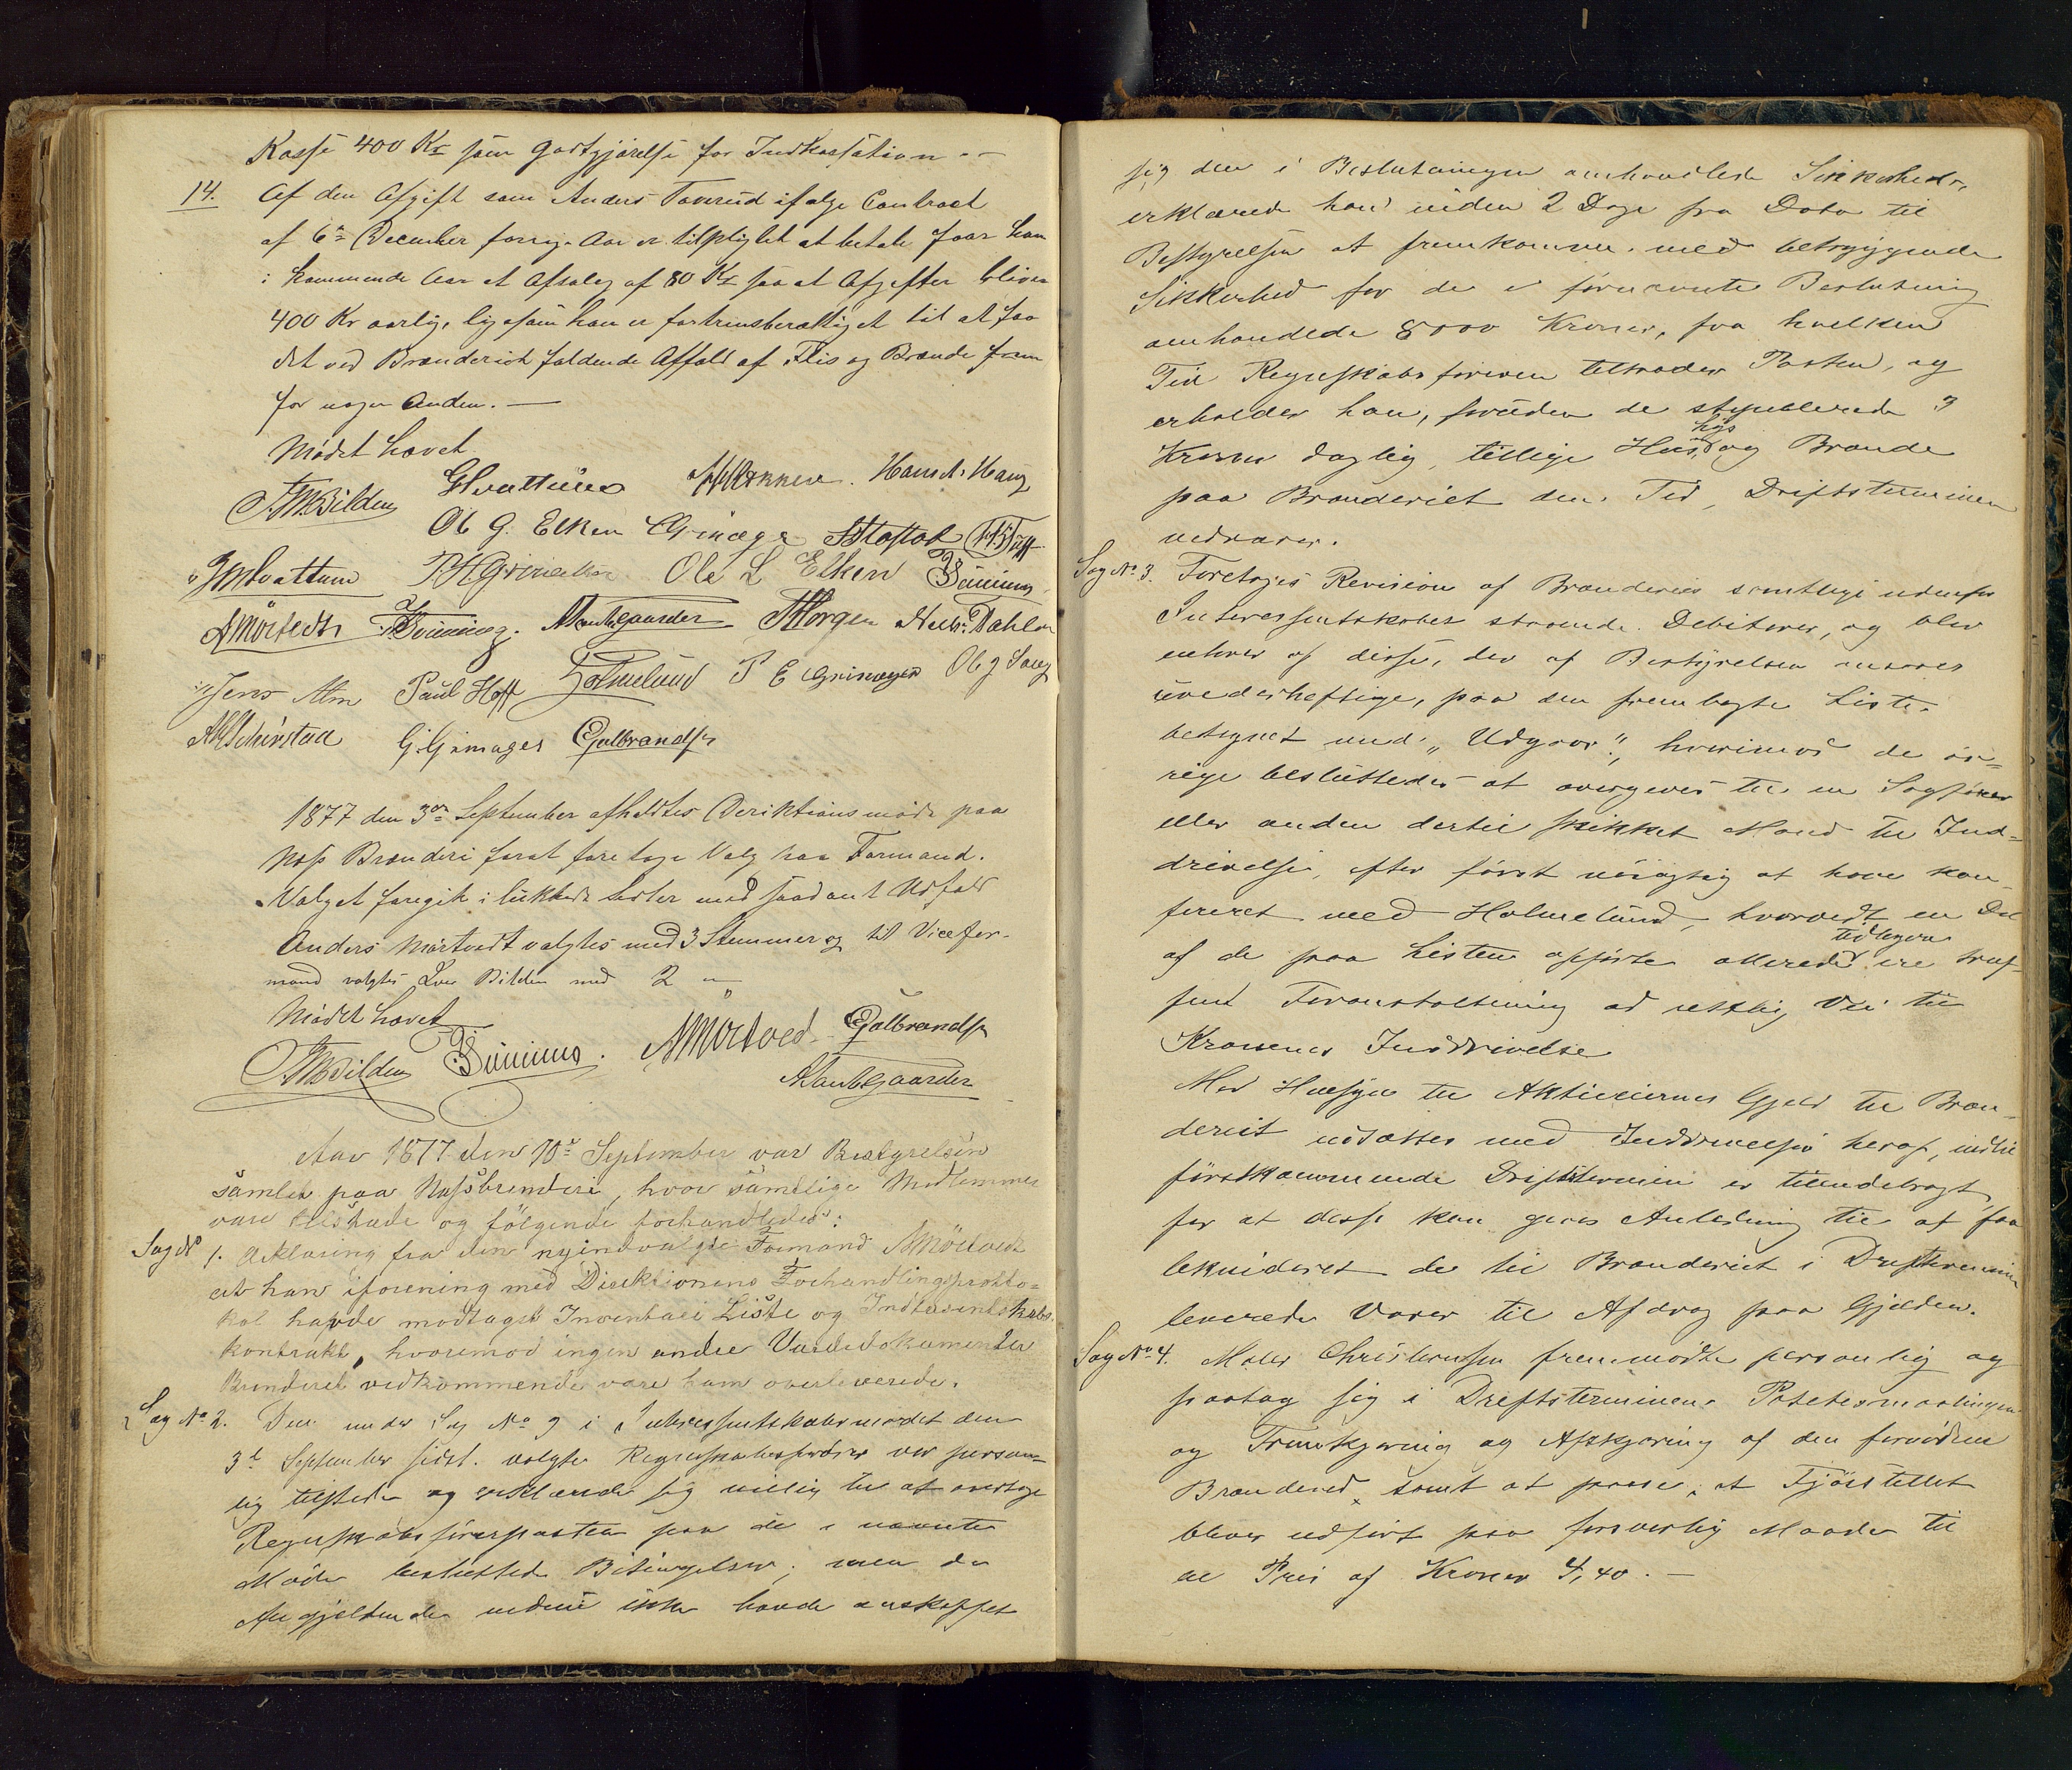 Kasse 400 Kr som Godtgjørelse for Indkastation. —
14. Af den Afgift som Anders Taverud ifølge Contract
af 6te December forrige Aar er tilpligtet at betale faar han
i kommende Aar et Afslag af 80 Kr saa at Afgiften bliver
400 Kr aarlig, ligesom han er fortrinsberettiget til at faa
det ved Brænderiet faldende Affald af Flis og Brænde frem
for nogen Anden. —
Mødet hævet
Ole G. Elken
Hvattum
Ole L Elken
Jens Alm Paul Hoff Holmelund P E Grimager
G. Grimager Gulbrandsen
1877 den 3die September afholdtes Direktionsmøde paa
Næss Brænderi forat foretage Valg paa Formand.
Valget foregik i lukkede Sedler med saadant Udfald
Anders Mørtvedt valgtes med 3 Stemmer og til Vicefor-
mand valgtes Bilden med 2 "
Mødet hævet
Bilden AMørtved Gulbrandsen
Aar 1877 den 10de September var Bestyrelsen
samlet paa Næssbrenderi, hvor samtlige Medlemmer
vare tilstæde og følgende forhandledes:
Sag No 1. Erklæring fra den nyindvalgte Formand AMörtvedt
at han iforening med Direktionens Forhandlingsprotto-
kol havde modtaget Inventarii Liste og Indteresentskabs-
kontrakt, hvoremod ingen andre Værdidokumenter
Brenderiet vedkommende vare ham overleverede.
Sag No 2. Den under Sag No 9 i Interessentskabsmødet den
3d September sidst. valgte Regnskabsfører var person-
lig tilstede og erklærede sig villig til at modtage
Regnskabsførerposten paa de i nævnte
Møde besluttede Betingelser; men da
Angjældende endnu ikke havde anskaffet
sig den i Beslutningen omhandlede Sikkerhed,
erklærede han inden 2 Dage fra Dato til
Bestyrelsen at fremkomme med betryggende
Sikkerhed for de i førnævnte Beslutning
omhandlede 8000 Kroner, fra hvilken
Tid Regnskabsføreren tiltræder Posten, og
erholder han, foruden de stipulerede 3
Kroner daglig, tillige Huus, Lys og Brænde
paa Brænderiet den Tid, Driftsterminen
vedvarer.
Sag No 3. Foretoges Revision af Brænderiets samtlige udenfor
Interessentskabet staaende Debitorer, og blev
enhver af disse, der af Bestyrelsen ansaaes
uvederhæftige, paa den fremlagte Liste
betegnet med "Udgaar", hvorimod de øv-
rige besluttedes at overgives til en Sagfører
eller anden dertil skikket Mand til Ind-
drivelse, efter først nøiagtig at have kon-
fereret med Holmelund, hvorvidt en Del
af de paa Listen opførte allerede tidligere ere truf-
fent Foranstaltning ad retslig Vei til
Kravenes Inddrivelse
Med Hensyn til Aktieeiernes Gjæld til Bræn-
deriet udsættes med Inddrivelse heraf, indtil
førstkommende Driftstermin er tilendebragt,
for at disse kan gives Anledning til at faa
likvideret de til Brænderiet i Driftsterminen
leverede Varer til Afdrag paa Gjælden.
Sag No 4. Maler Christensen fremmødte personlig og
paatog sig i Driftsterminen Potetesmaalingen
og Fremkjøring og Afskjæring af den fornødne
Brændeved, samt at passe, at Fjøsstellet
bliver udført paa forsvarlig Maade til
en Pris af Kroner 4,40. —